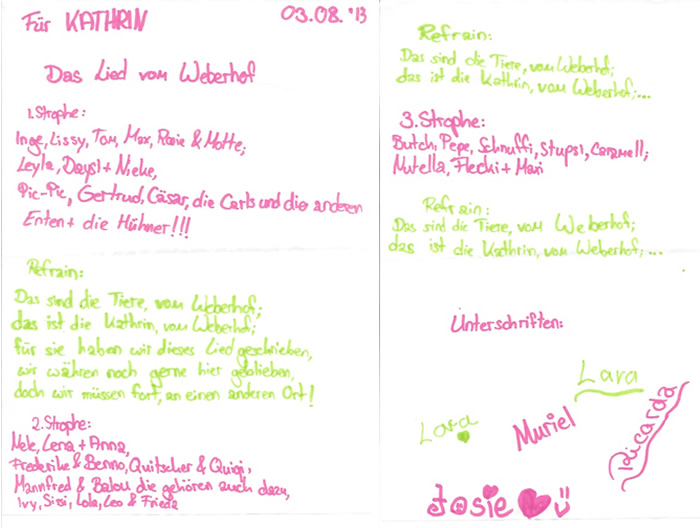 Für KATHRIN
03.08.'13
Das Lied vom Weberhof
1. Strophe:
Inge, Lissy, Tom, Max, Rosie & Motte;
Leyla, Daysi + Nieke,
Pic-Pic, Gertrud, Cäsar, die Carls und die anderen
Enten + die Hühner!!!
Refrain:
Das sind die Tiere, vom Weberhof;
das ist die Kathrin, vom Weberhof;
für sie haben wir dieses Lied geschrieben,
wir währen noch gerne hier geblieben,
doch wir müssen fort, an einen anderen Ort!
2. Strophe:
Nele, Lena + Anna,
Frederike & Benno, Quitscher & Quigi,
Mannfred & Balou die gehören auch dazu,
Ivy, Sissi, Lola, Leo & Frieda
Refrain:
Das sind die Tiere, vom Weberhof;
das ist die Kathrin, vom Weberhof;...
3. Strophe:
Butch, Pepe, Schnuffi, Stupsi, Caramell;
Nutella, Flecki + Maxi
Refrain:
Das sind die Tiere, vom Weberhof;
das ist die Kathrin, vom Weberhof;...
Unterschriften:
Lara
Lara
Muriel
Ricarda
Josie